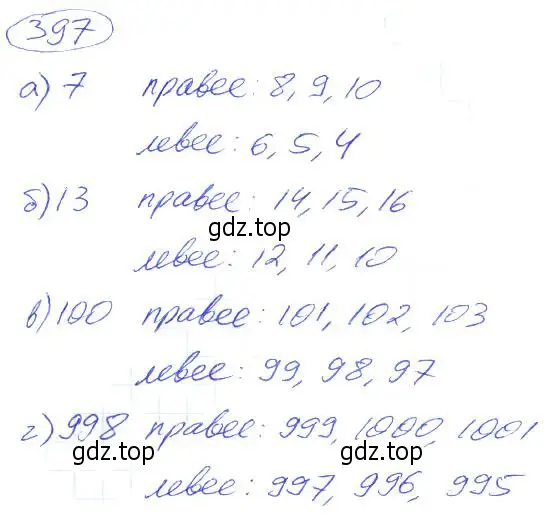 397
а) 7 правее: 8, 9, 10
левее: 6, 5, 4
б) 13 правее: 14, 15, 16
gdz.top
левее: 12, 11, 10
в) 100 правее: 101, 102, 103
левее: 99, 98, 97
г) 998 правее: 999, 1000, 1001
gdz.top
левее: 997, 996, 995